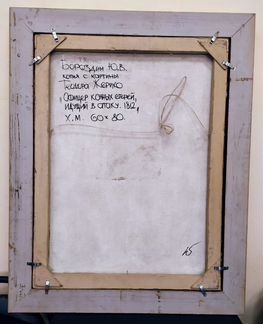 Бороздин Ю.В.
копия с картины
Теодора Жерико
"Офицер конных егерей,
идущий в атаку. 1812,
Х.М. 60×80.